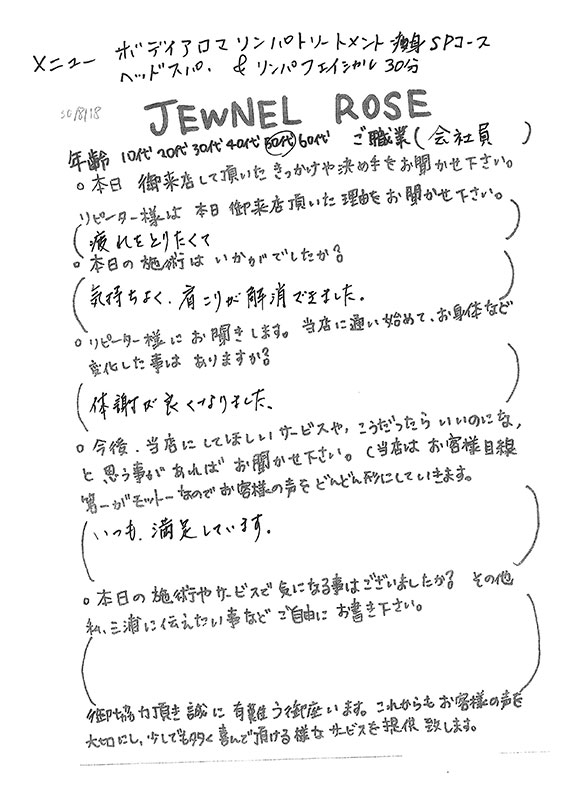 メニュー ボディアロマリンパトリートメント 痩身SPコース
ヘッドスパ. & リンパフェイシャル 30分
JEWNEL ROSE
年齢 10代 20代 30代 40代 50代 60代 ご職業(会社員 )
○本日 御来店して頂いたきっかけや決め手をお聞かせ下さい。
リピーター様は 本日 御来店頂いた理由をお聞かせ下さい。
(疲れをとりたくて )
○本日の施術は いかがでしたか?
(気持ちよく、肩こりが解消できました。 )
○リピーター様にお聞きします。当店に通い始めて、お身体など
変化した事は ありますか?
(体謝が良くなりました、 )
○今後、当店にしてほしいサービスや、こうだったら いいのにな、
と思う事があれば お聞かせ下さい。(当店は お客様目線
第一がモットーなのでお客様の声を どんどん形にしていきます。
(いつも、満足しています。 )
○本日の施術やサービスで気になる事はございましたか? その他
私、三浦に伝えたい事など ご自由に お書き下さい。
( )
御協力頂き誠に有難う御座います。これからもお客様の声を
大切にし、少しでも多く喜んで頂ける様なサービスを提供致します。